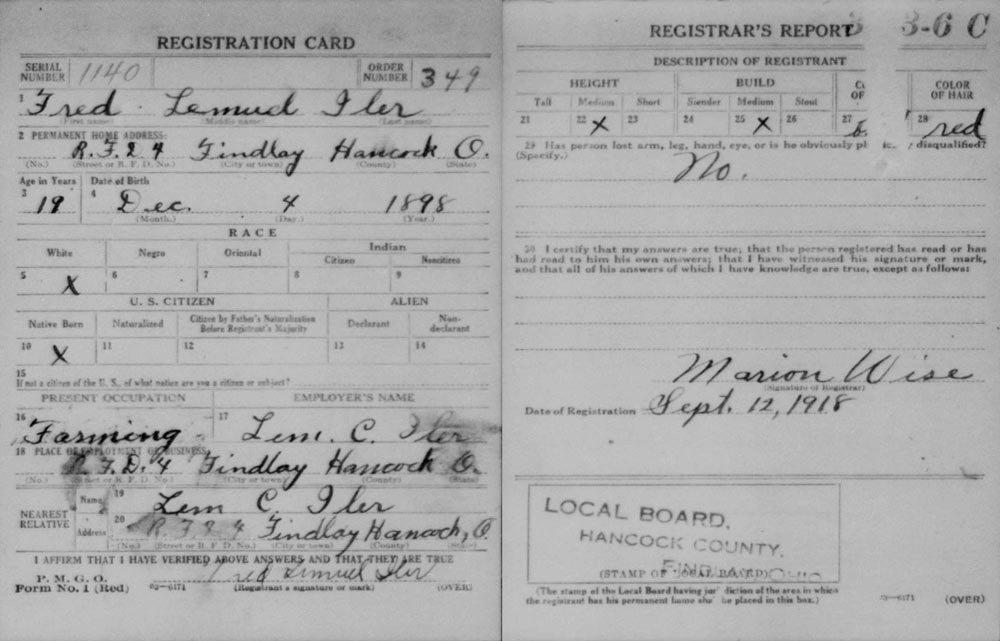 REGISTRATION CARD
SERIAL NUMBER 1140 ORDER NUMBER 349
1 Fred Lemuel Iler
(First name) (Middle name) (Last name)
2 PERMANENT HOME ADDRESS:
R.F.D. 4 Findlay Hancock O.
(No.) (Street or R. F. D. No.) (City or town) (County) (State)
Age in Years Date of Birth
3 19 4 Dec. 4 1898
(Month.) (Day.) (Year.)
RACE
White Negro Oriental Indian
Citizen Noncitizen
5 X 6 7 8 9
U. S. CITIZEN ALIEN
Native Born Naturalized Citizen by Father's Naturalization Before Registrant's Majority Declarant Non-declarant
10 X 11 12 13 14
15
If not a citizen of the U. S., of what nation are you a citizen or subject?
PRESENT OCCUPATION EMPLOYER'S NAME
16 Farming 17 Lem. C. Iler
18 PLACE OF EMPLOYMENT OR BUSINESS:
R.F.D. 4 Findlay Hancock O.
(No.) (Street or R. F. D. No.) (City or town) (County) (State)
NEAREST RELATIVE
Name 19 Lem C. Iler
Address 20 R.F.D 4 Findlay Hancock, O.
(No.) (Street or R. F. D. No.) (City or town) (County) (State)
I AFFIRM THAT I HAVE VERIFIED ABOVE ANSWERS AND THAT THEY ARE TRUE
P. M. G. O.
Form No. 1 (Red) 03-6171 Fred Lemuel Iler
(Registrant's signature or mark) (OVER)
REGISTRAR'S REPORT 3-6 C
DESCRIPTION OF REGISTRANT
HEIGHT BUILD COLOR OF HAIR
Tall Medium Short Slender Medium Stout
21 22 X 23 24 25 X 26 27 28 red
29 Has person lost arm, leg, hand, eye, or is he obviously disqualified?
(Specify.) No.
30 I certify that my answers are true; that the person registered has read or has
had read to him his own answers; that I have witnessed his signature or mark,
and that all of his answers of which I have knowledge are true, except as follows:
Marion Wise
(Signature of Registrar)
Date of Registration Sept. 12, 1918
LOCAL BOARD,
HANCOCK COUNTY,
FINDLAY, OHIO
(STAMP OF LOCAL BOARD)
(The stamp of the Local Board having jurisdiction of the area in which
the registrant has his permanent home shall be placed in this box.)
03-6171 (OVER)